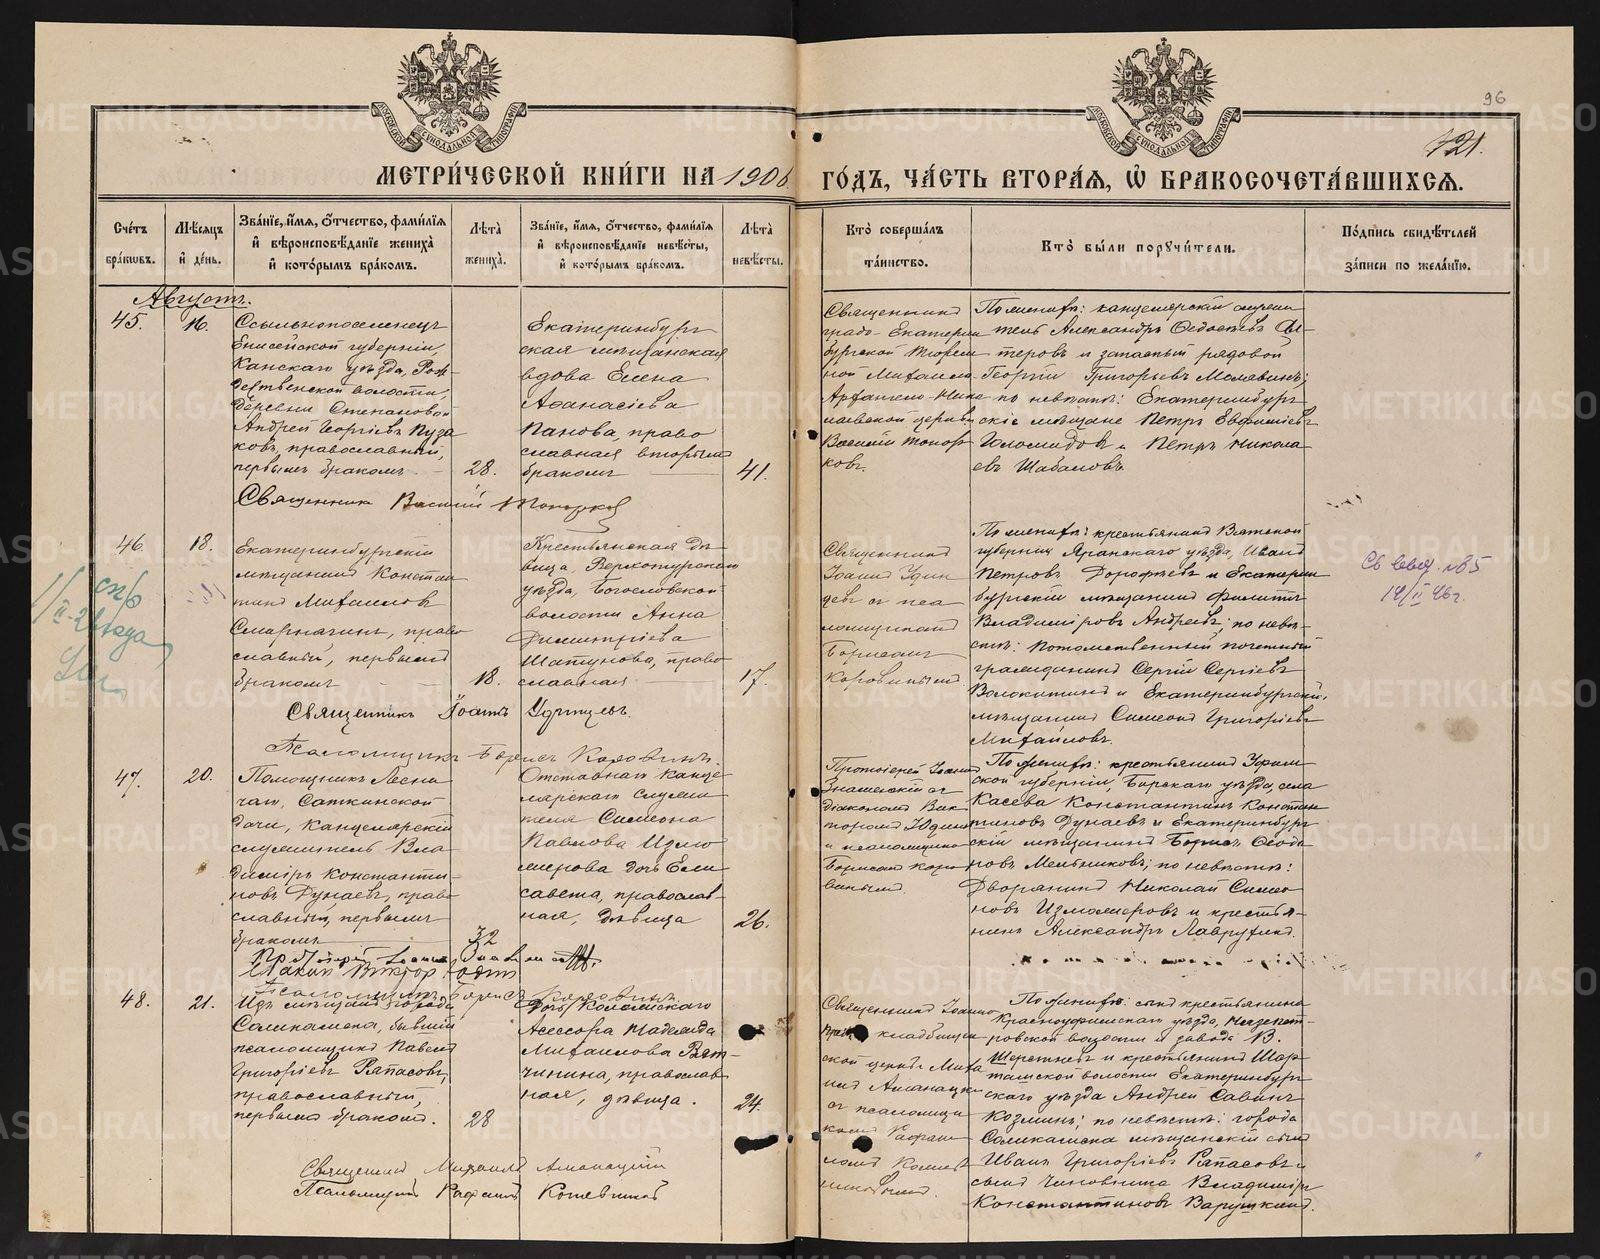 96
121.
МЕТРИ́ЧЕСКОЙ КНИ́ГИ НА 1906 ГО́ДЪ, ЧА́СТЬ ВТОРА́Я, Ѡ БРАКОСОЧЕТА́ВШИХСЯ.
Сче́тъ бра́ковъ.
Мѣ́сяцъ и де́нь.
Зва́нїе, и́мя, о́тчество, фами́лїя и вѣроисповѣ́данїе жениха̀ и кото́рымъ бра́комъ.
Лѣ́та жениха̀.
Зва́нїе, и́мя, о́тчество, фами́лїя и вѣроисповѣ́данїе невѣ́сты, и кото́рымъ бра́комъ.
Лѣ́та невѣ́сты.
Кто̀ соверша́лъ та́инство.
Кто̀ бы́ли поручи́тели.
По́дпись свидѣ́телей за́писи по жела́нїю.
Августъ.
45.
16.
Ссыльнопоселенецъ
Енисейской губерніи,
Канскаго уѣзда, Рож-
дественской волости,
деревни Степановой
Андрей Георгіевъ Пуза
ковъ, православный,
первымъ бракомъ
28.
Екатеринбург
ская мѣщанская
вдова Елена
Аѳанасіева
Панова, право
славная вторымъ
бракомъ
41.
Священникъ
градо-Екатерин
бургской Тюрем
ной Михаило-
Архангело-Нико
лаевской церкви
Василій Топор
ковъ.
По женихѣ: канцелярскій служи
тель Александръ
теровъ и запасный рядовой
Георгій Григорьевъ Малявинъ;
по невѣстѣ: Екатеринбург
скіе мѣщане Петръ Евфиміевъ
и Петръ Никола
евъ Шабаловъ.
Священникъ Василій Топорковъ
46.
18.
Екатеринбургскій
мѣщанинъ Констан
тинъ Михаиловъ
Смарагинъ, право
славный, первымъ
бракомъ
18.
Крестьянская дѣ
вица, Верхотурскаго
уѣзда, Богословской
волости Анна
Димитріева
Шатунова, право
славная
17.
Священникъ
Іоаннъ Удин
цевъ съ пса
ломщикомъ
Борисомъ
Коровинымъ
По женихѣ: крестьянинъ Вятской
губерніи Яранскаго уѣзда, Иванъ
Петровъ Дорофѣевъ и Екатерин
бургскій мѣщанинъ Филиппъ
Владиміровъ Андреевъ; по невѣ-
стѣ: потомственный почетный
гражданинъ Сергій Сергіевъ
Волокитинъ и Екатеринбургскій
мѣщанинъ Симеонъ Григоріевъ
Михайловъ.
Священникъ Іоаннъ Удинцевъ.
Псаломщикъ Борисъ Коровинъ.
47.
20.
Помощникъ Лѣсни
чаго, Саткинской
дачи, канцелярскій
служитель Вла
диміръ Константи
новъ Дунаевъ, право
славный, первымъ
бракомъ
32
Отставнаго канце
лярскаго служи
теля Симеона
Павлова Измо
жерова дочь Ели
савета, православ-
ная, дѣвица
26.
Протоіерей Іоаннъ
Знаменскій съ
діакономъ Вик
торомъ Юдинымъ
и псаломщикомъ
Борисомъ Коро
винымъ.
По женихѣ: крестьянинъ Уфим
ской губерніи, Бирскаго уѣзда, села
Касева Константинъ Констан
тиновъ Дунаевъ и Екатеринбург
скій мѣщанинъ Борисъ Ѳеодо
ровъ Мельниковъ; по невѣстѣ:
Дворянинъ Николай Симео
новъ Изможеровъ и крестья-
нинъ Александръ Лаврухинъ.
Протоіерей Іоаннъ Знаменскій.
Діаконъ Викторъ Юдинъ
Псаломщикъ Борисъ Коровинъ.
48.
21.
Изъ мѣщанъ города
Соликамска, бывшій
псаломщикъ Павелъ
Григоріевъ Ряпасовъ,
православный,
первымъ бракомъ.
28
Дочь Коллежскаго
Ассесора Надежда
Михаилова Вят-
чинина, православ
ная, дѣвица.
24.
Священникъ Іоанно
кладбищен
ской церкви Миха
илъ Аманацкій
съ псаломщи
комъ Рафаи
ломъ Кожев
никовымъ.
По женихѣ: сынъ крестьянина
Красноуфимскаго уѣзда, Нязепет-
ровской волости и завода В.
Шерстневъ и крестьянинъ Шар
ташской волости Екатеринбург
скаго уѣзда Андрей Саввинъ
Козминъ; по невѣстѣ: города
Соликамска мѣщанскій сынъ
Иванъ Григоріевъ Ряпасовъ и
сынъ чиновника Владиміръ
Константиновъ Варушкинъ.
Священникъ Михаилъ Аманацкій
Псаломщикъ Рафаилъ Кожевниковъ